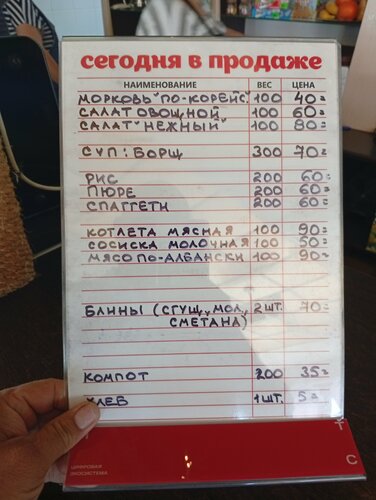 сегодня в продаже
НАИМЕНОВАНИЕ ВЕС ЦЕНА
МОРКОВЬ "ПО-КОРЕЙС." 100 40=
САЛАТ ОВОЩНОЙ 100 60=
САЛАТ "НЕЖНЫЙ" 100 80=
СУП: БОРЩ 300 70=
РИС 200 60=
ПЮРЕ 200 60=
СПАГГЕТИ 200 60=
КОТЛЕТА МЯСНАЯ 100 90=
СОСИСКА МОЛОЧНАЯ 100 50=
МЯСО ПО-АЛБАНСКИ 100 90=
БЛИНЫ (СГУЩ., МОЛ., 2 ШТ. 70=
СМЕТАНА)
КОМПОТ 200 35=
ХЛЕБ 1 ШТ. 5=
ЦИФРОВАЯ
ЭКОСИСТЕМА